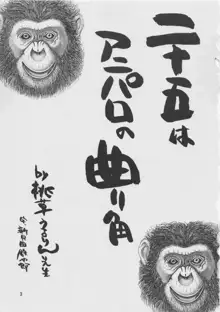 二十五は
アニパロの
曲り角
by 桃草うらん先生
3